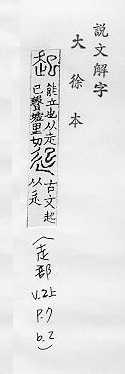 說文解字
大徐本
起
能立也从走
巳聲墟里切
古文起
从辵
(走部
V.2上
P.7
b.2)